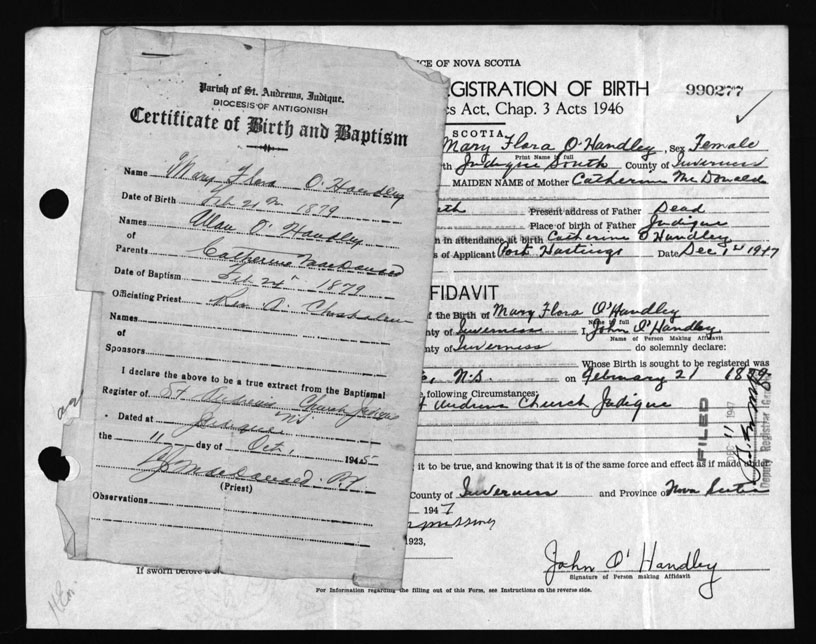 Parish of St. Andrews, Judique.
DIOCESIS OF ANTIGONISH
Certificate of Birth and Baptism
Name Mary Flora O'Handley
Date of Birth Feb 21 1879
Names Allan O'Handley
of
Parents Catherine MacDonald
Date of Baptism Feb 24 1879
Officiating Priest Rev A. Chisholm
Names
of
Sponsors
I declare the above to be a true extract from the Baptismal
Register of St Andrews Church Judique
NS
Dated at Judique
the 11 day of Oct. 1945
MacDonald P.P.
(Priest)
Observations
CE OF NOVA SCOTIA
GISTRATION OF BIRTH
990277
cs Act, Chap. 3 Acts 1946
SCOTIA
Mary Flora O'Handley, Sex Female
Print Name in full
th Judique South County of Inverness
MAIDEN NAME of Mother Catherine McDonald
th Present address of Father Dead
Place of birth of Father Judique
n in attendance at birth Catherine O'Handley
s of Applicant Port Hastings Date Dec 1st 1947
FFIDAVIT
f the Birth of Mary Flora O'Handley
Name in full
nty of Inverness I, John O'Handley
Name of Person Making Affidavit
nty of Inverness do solemnly declare:
Whose Birth is sought to be registered was
N.S. on February 21 1879
e following Circumstances:
St Andrews Church Judique
FILED
DEC 11 1947
Deputy Registrar General
it to be true, and knowing that it is of the same force and effect as if made under
County of Inverness and Province of Nova Scotia
1947
1923,
If sworn before a
John O'Handley
Signature of Person making Affidavit
For Information regarding the filling out of this Form, see Instructions on the reverse side.